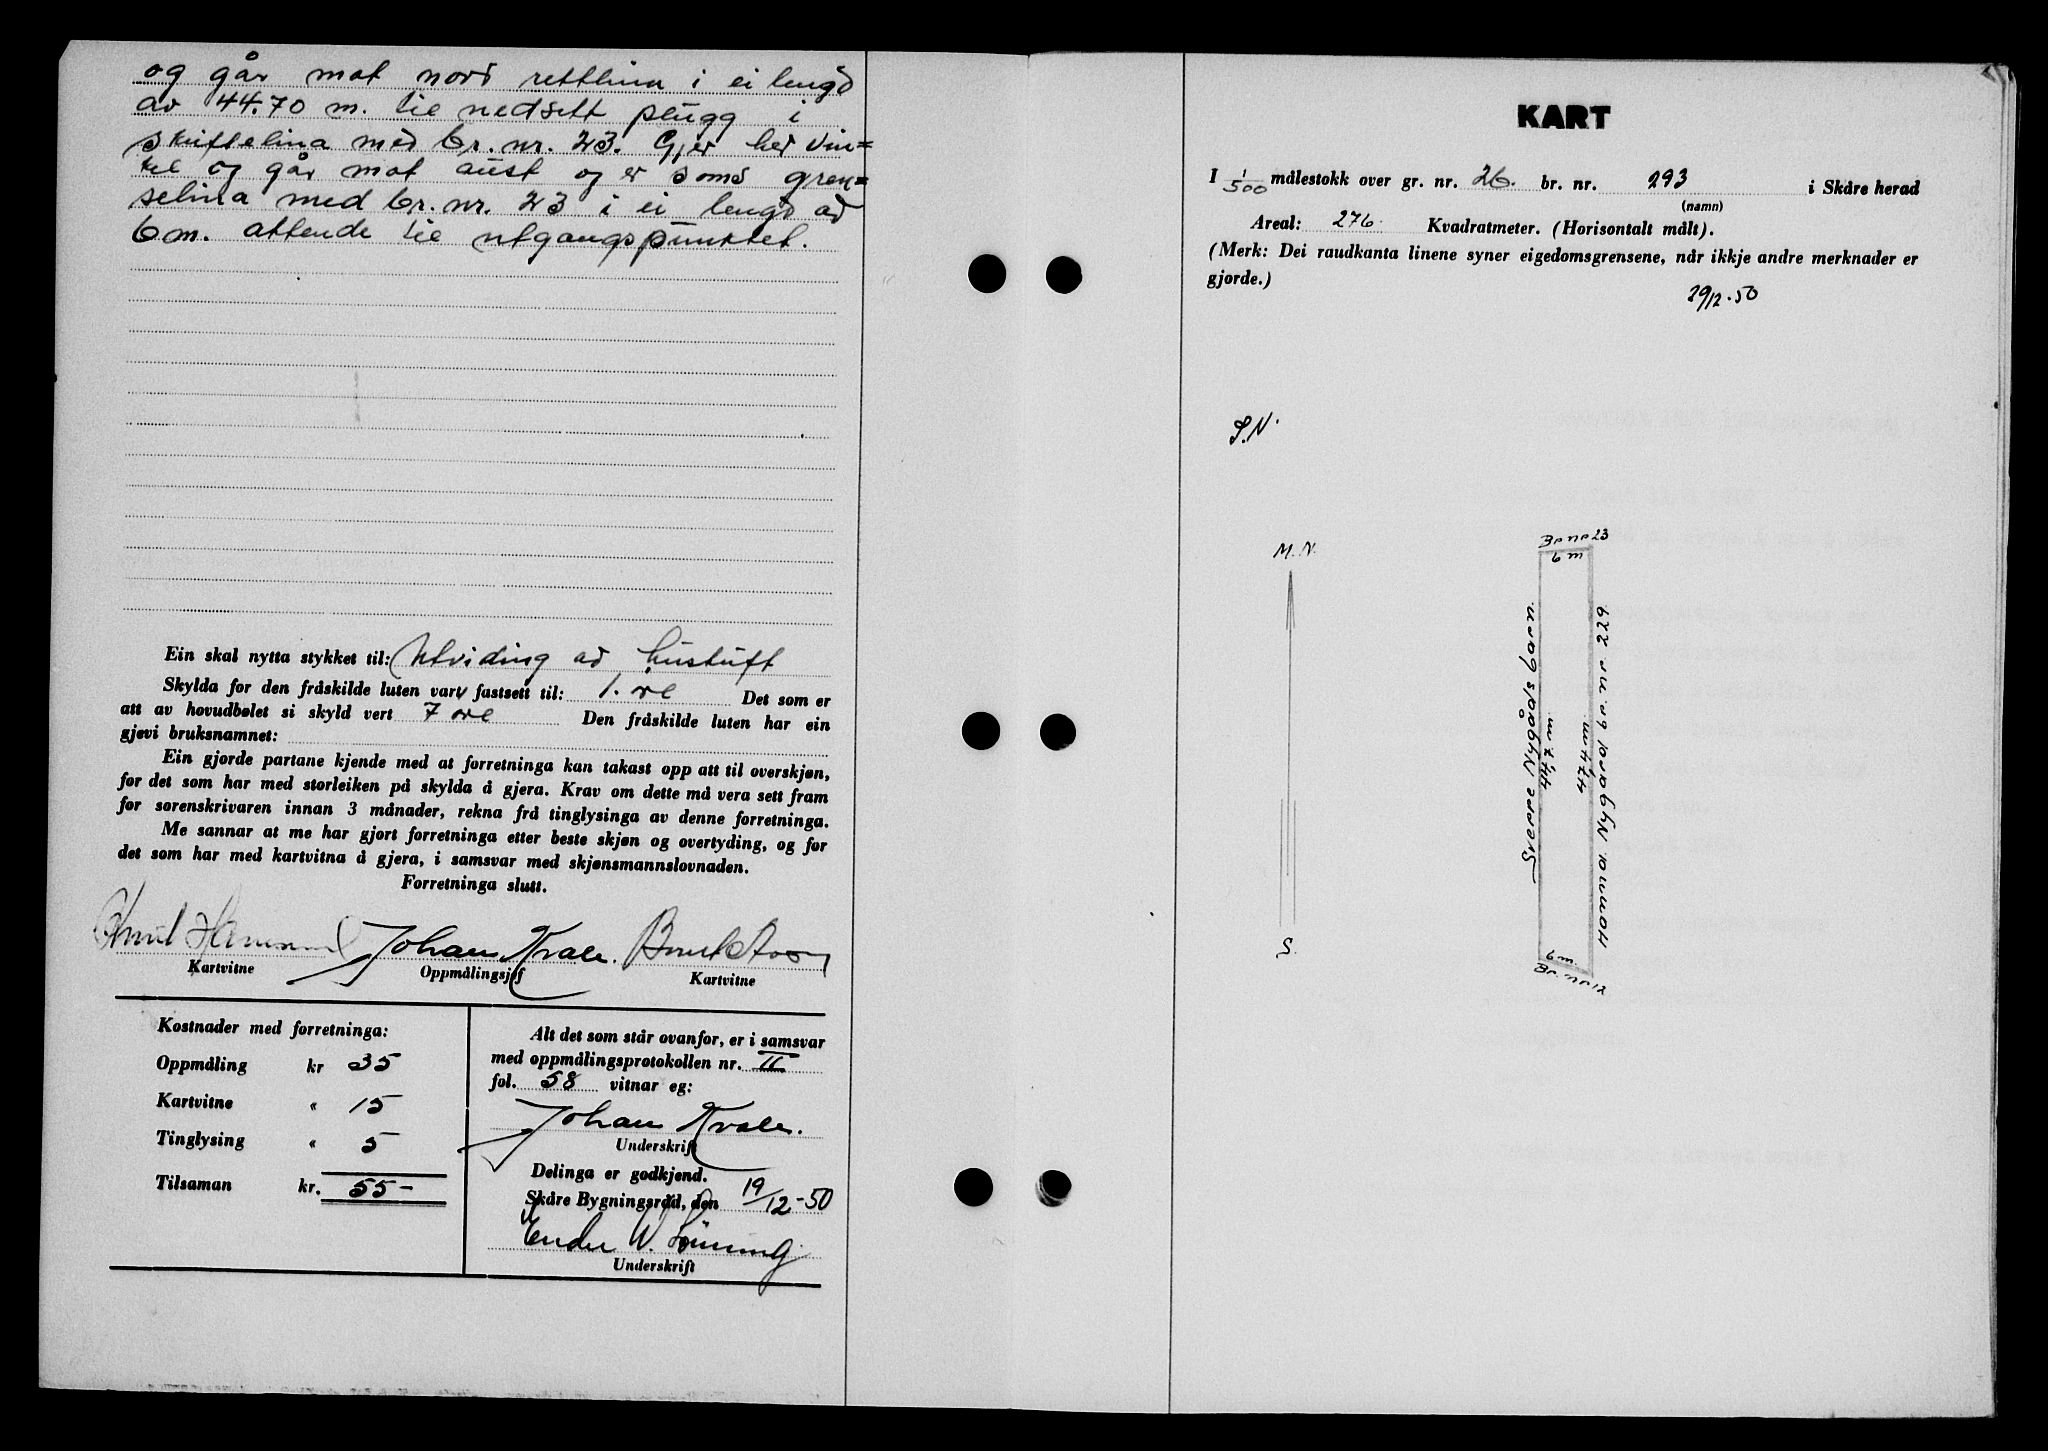 og går mot nord rettlina i ei lengd
av 44.70 m. til nedsett plugg i
skiftelina med br. nr. 23. Gjer her vin=
kel og går mot aust og er soms gren=
selina med br. nr. 23 i ei lengd av
6 m. attende til utgangspunktet.
Ein skal nytta stykket til: Utviding av hustuft
Skylda for den fråskilde luten varv fastsett til: 1. øre Det som er
att av hovudbølet si skyld vert 7 øre Den fråskilde luten har ein
gjevi bruksnamnet:
Ein gjorde partane kjende med at forretninga kan takast opp att til overskjøn,
for det som har med storleiken på skylda å gjera. Krav om dette må vera sett fram
for sorenskrivaren innan 3 månader, rekna frå tinglysinga av denne forretninga.
Me sannar at me har gjort forretninga etter beste skjøn og overtyding, og for
det som har med kartvitna å gjera, i samsvar med skjønsmannslovnaden.
Forretninga slutt.
Johan Kvale.
Kartvitne Oppmålingsjef Kartvitne
Kostnader med forretninga:
Oppmåling kr 35
Kartvitne " 15
Tinglysing " 5
Tilsaman kr. 55-
Alt det som står ovanfor, er i samsvar
med oppmålingsprotokollen nr. II
fol. 58 vitnar eg:
Johan Kvale.
Underskrift
Delinga er godkjend.
Skåre Bygningsråd, den 19/12-50
Endre V.
Underskrift
KART
I 1/500 målestokk over gr. nr. 26. br. nr. 293 i Skåre herad
(namn)
Areal: 276 Kvadratmeter. (Horisontalt målt).
(Merk: Dei raudkanta linene syner eigedomsgrensene, når ikkje andre merknader er
gjorde.)
29/12.50
S.N.
M.N.
S.
Br nr 23
6 m
Sverre Nygårds barn.
44,7 m
47,4 m
Hamma. Nygård br nr 229
6 m.
Br. nr 12